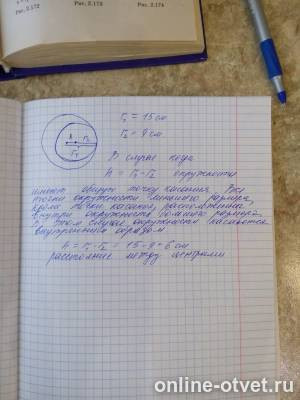 Рис. 2.172
Рис. 2.173
Рис. 2.174
r₁ = 15 см
r₂ = 9 см
A
r₂
r₁
В случае когда
A = r₁ - r₂ окружности
имеют общую точку касания. Все
точки окружности меньшего размера
кроме точки касания, расположены
внутри окружности большего размера
В этом случае окружности касаются
внутренним образом
A = r₁ - r₂ = 15 - 9 = 6 см
расстояние между центрами
online-otvet.ru